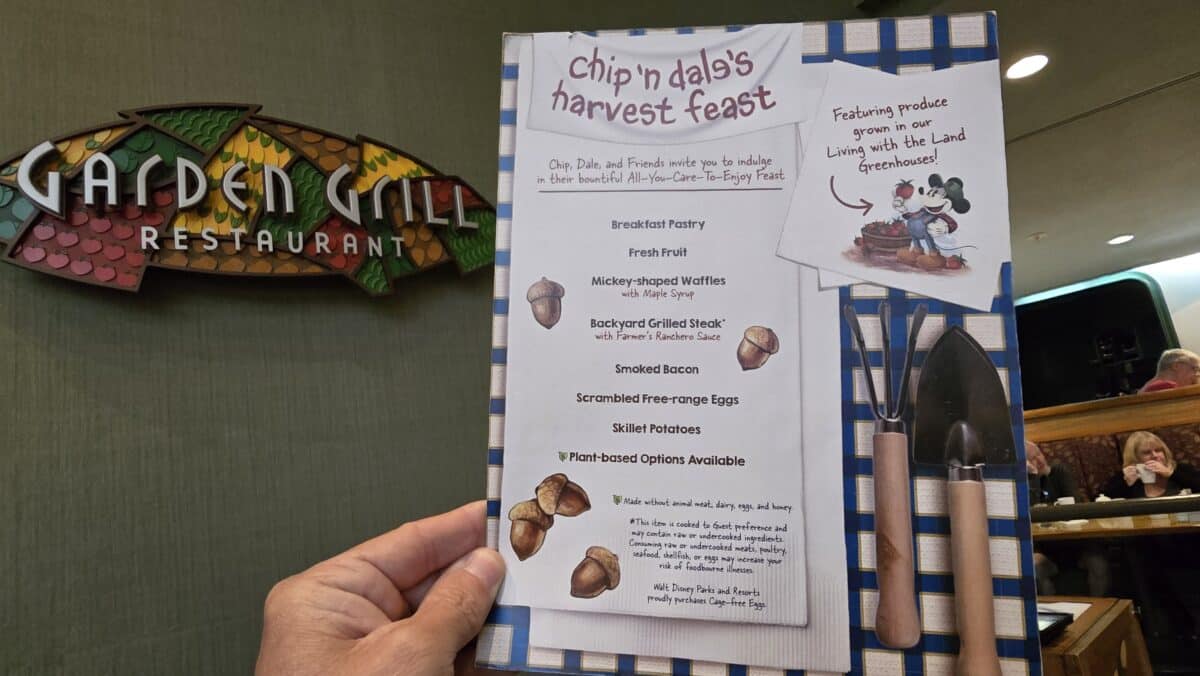 Garden Grill
Restaurant
chip 'n dale's
harvest feast
Chip, Dale, and Friends invite you to indulge
in their bountiful All-You-Care-To-Enjoy Feast
Breakfast Pastry
Fresh Fruit
Mickey-shaped Waffles
with Maple Syrup
Backyard Grilled Steak*
with Farmer's Ranchero Sauce
Smoked Bacon
Scrambled Free-range Eggs
Skillet Potatoes
Plant-based Options Available
Made without animal meat, dairy, eggs, and honey.
*This item is cooked to Guest preference and
may contain raw or undercooked ingredients.
Consuming raw or undercooked meats, poultry,
seafood, shellfish, or eggs may increase your
risk of foodbourne illnesses.
Walt Disney Parks and Resorts
proudly purchases Cage-free Eggs.
Featuring produce
grown in our
Living with the Land
Greenhouses!